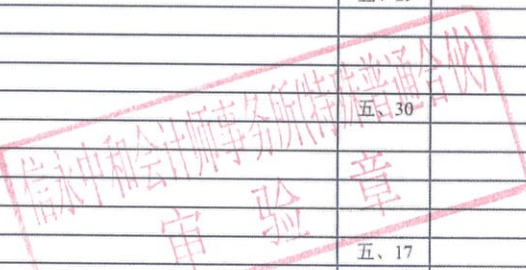 五、30
信永中和会计师事务所(特殊普通合伙)
审验章
五、17